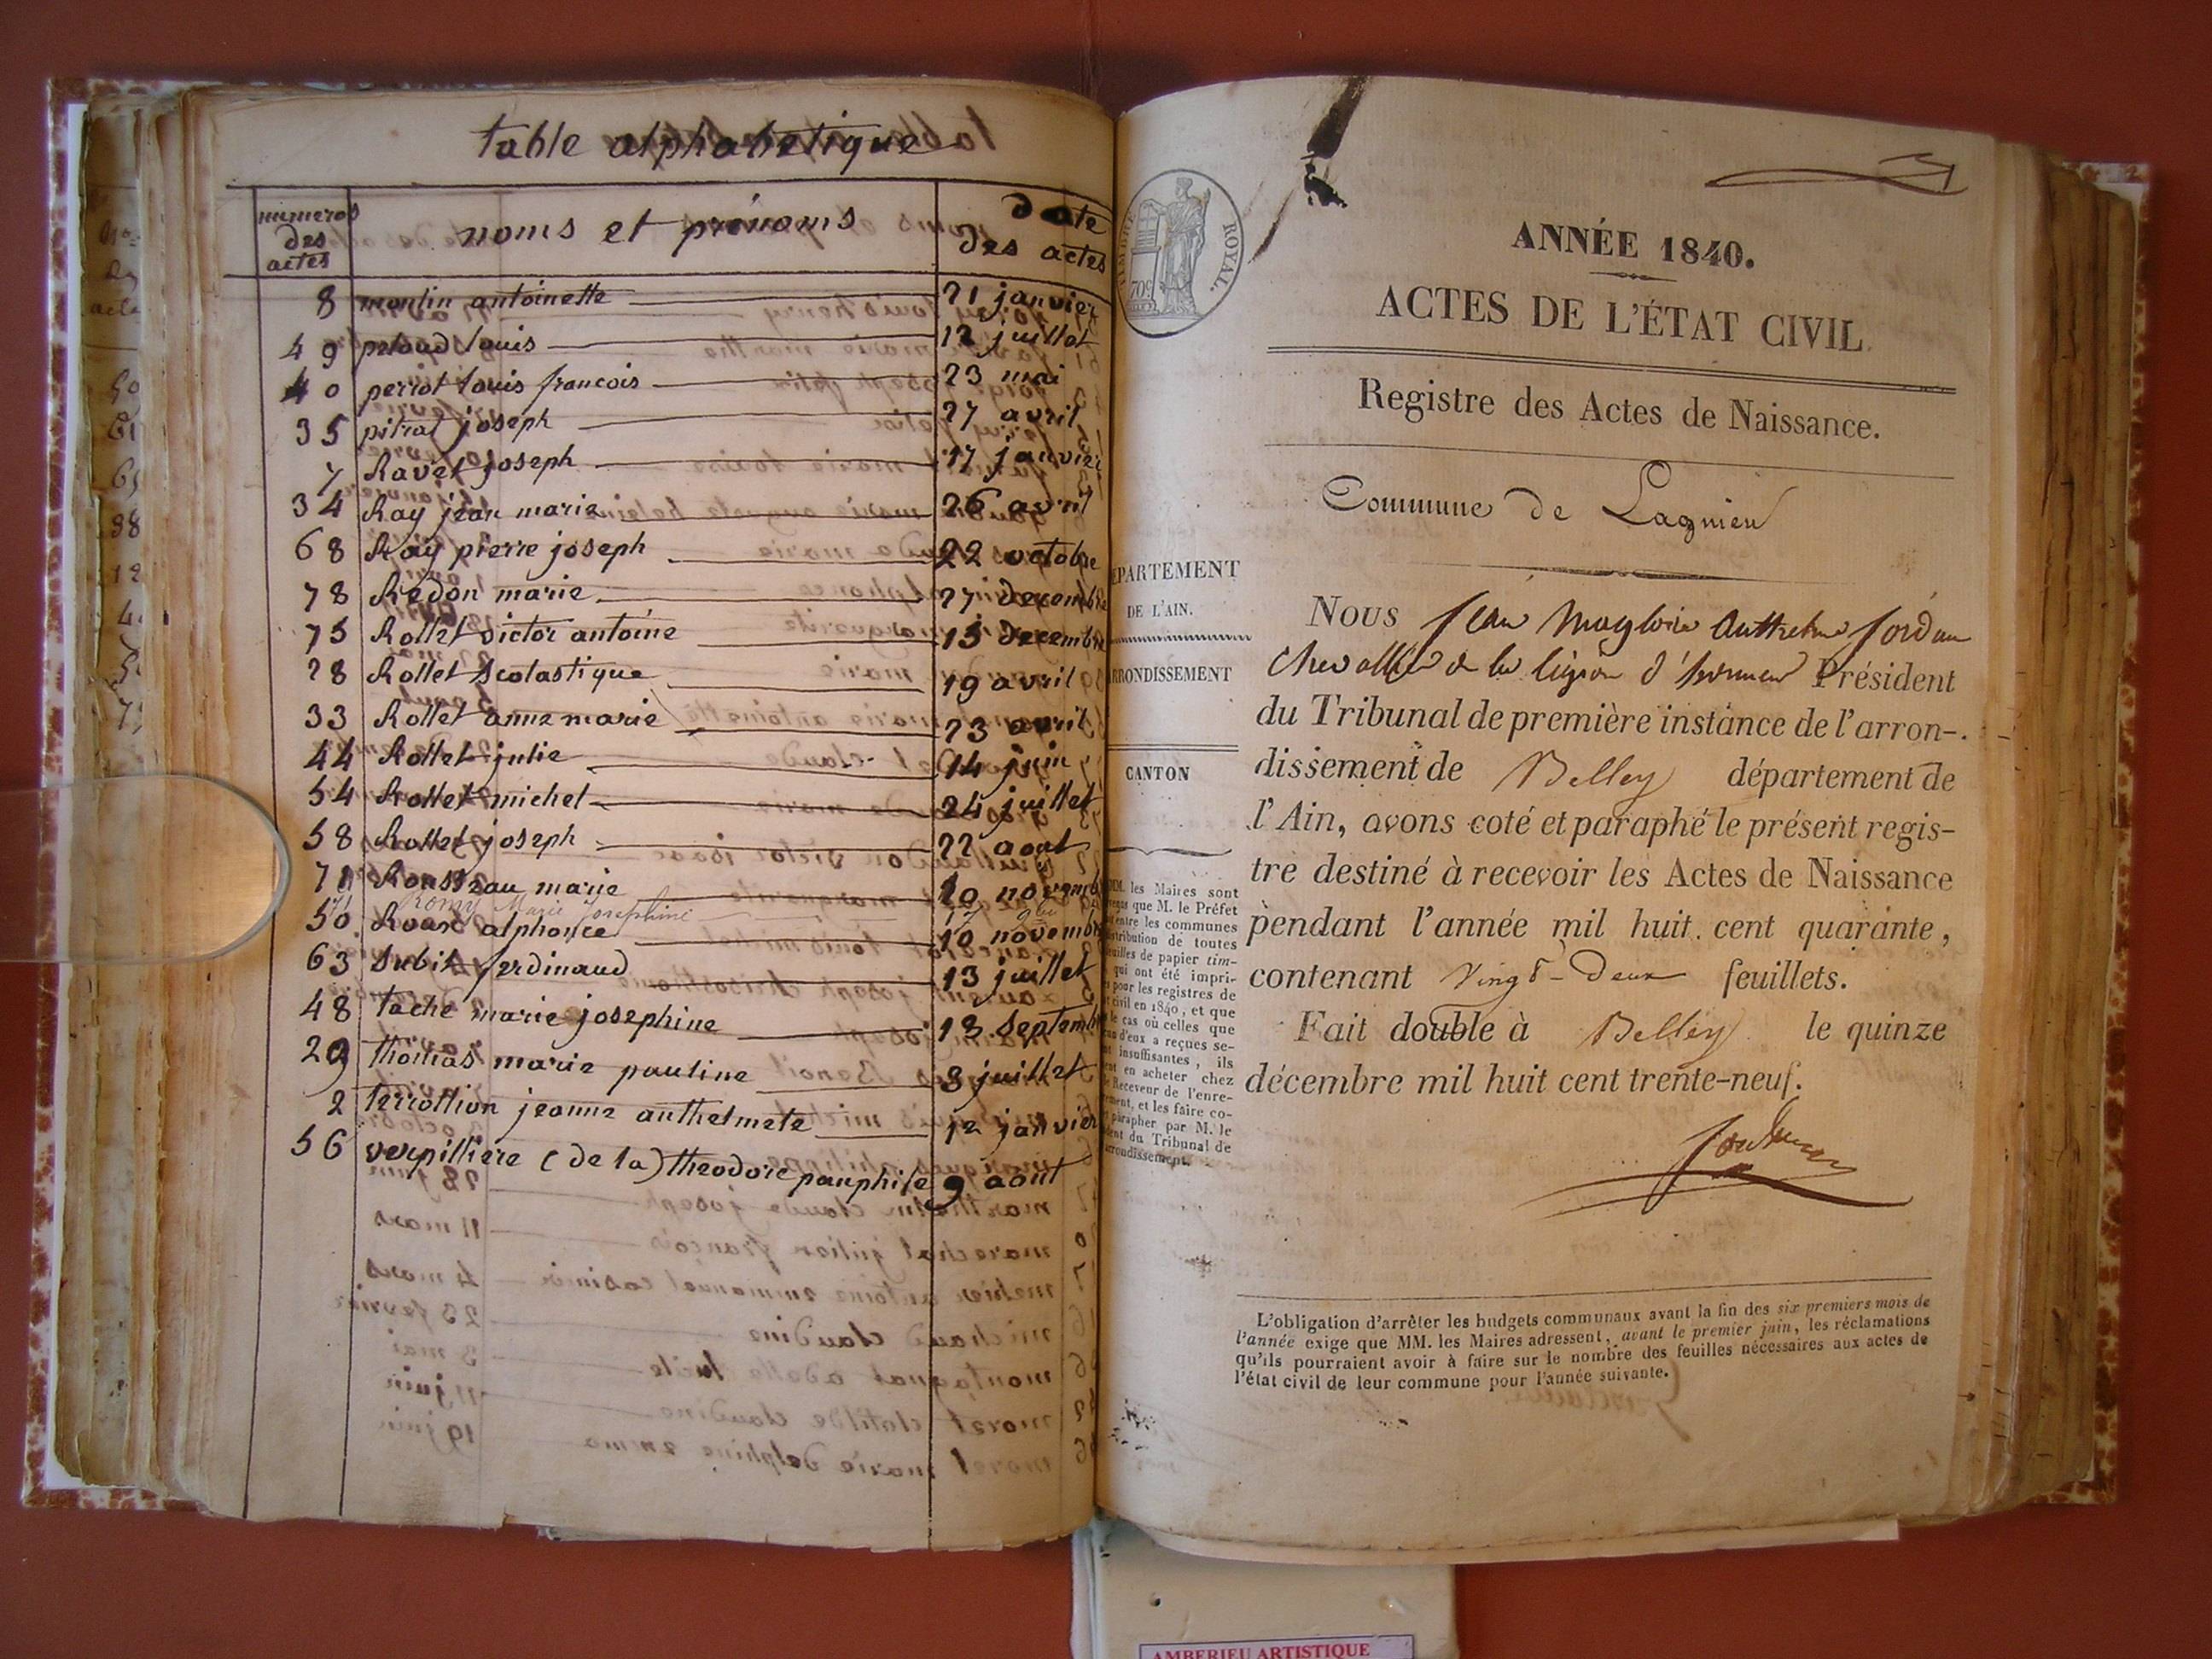 table alphabetique
numeros des actes
noms et prénoms
date des actes
8 moulin antoinette 21 janvier
49 peloud louis 12 juillet
40 perrot louis francois 23 mai
35 pitrat joseph 27 avril
7 Ravet joseph 17 janvier
34 Ray jean marie 26 avril
68 Ray pierre joseph 22 octobre
78 Redon marie 27 decembre
75 Rollet victor antoine 15 decembre
28 Rollet Scolastique 19 avril
33 Rollet anne marie 23 avril
44 Rollet julie 14 juin
54 Rollet michel 24 juillet
58 Rollet joseph 22 aout
71 Rousseau marie 10 novemb
Romy Marie Josephine 17 9bre
50 Roux alphonce 10 novembre
63 Subit ferdinand 13 juillet
48 tache marie josephine 18 septemb
29 thomas marie pauline 8 juillet
2 terrottion jeanne anthelmete 12 janvier
56 verpilliere (de la) theodore pamphile 9 aout
TIMBRE ROYAL.
70c
ANNÉE 1840.
ACTES DE L'ÉTAT CIVIL.
Registre des Actes de Naissance.
Commune de Lagnieu
EPARTEMENT
DE L'AIN.
RRONDISSEMENT
CANTON
MM. les Maires sont
que M. le Préfet
entre les communes
tribution de toutes
euilles de papier tim-
qui ont été impri-
pour les registres de
civil en 1840, et que
le cas où celles que
d'eux a reçues se-
insuffisantes, ils
en acheter chez
Receveur de l'enre-
ment, et les faire co-
parapher par M. le
dent du Tribunal de
arrondissement.
Nous Jean Magloire Anthelme Jordan
Chevallier de la légion d'honneur Président
du Tribunal de première instance de l'arron-
dissement de Belley département de
l'Ain, avons coté et paraphé le présent regis-
tre destiné à recevoir les Actes de Naissance
pendant l'année mil huit cent quarante,
contenant vingt-deux feuillets.
Fait double à Belley le quinze
décembre mil huit cent trente-neuf.
Jordan
L'obligation d'arrêter les budgets communaux avant la fin des six premiers mois de
l'année exige que MM. les Maires adressent, avant le premier juin, les réclamations
qu'ils pourraient avoir à faire sur le nombre des feuilles nécessaires aux actes de
l'état civil de leur commune pour l'année suivante.
AMBERIEU ARTISTIQUE